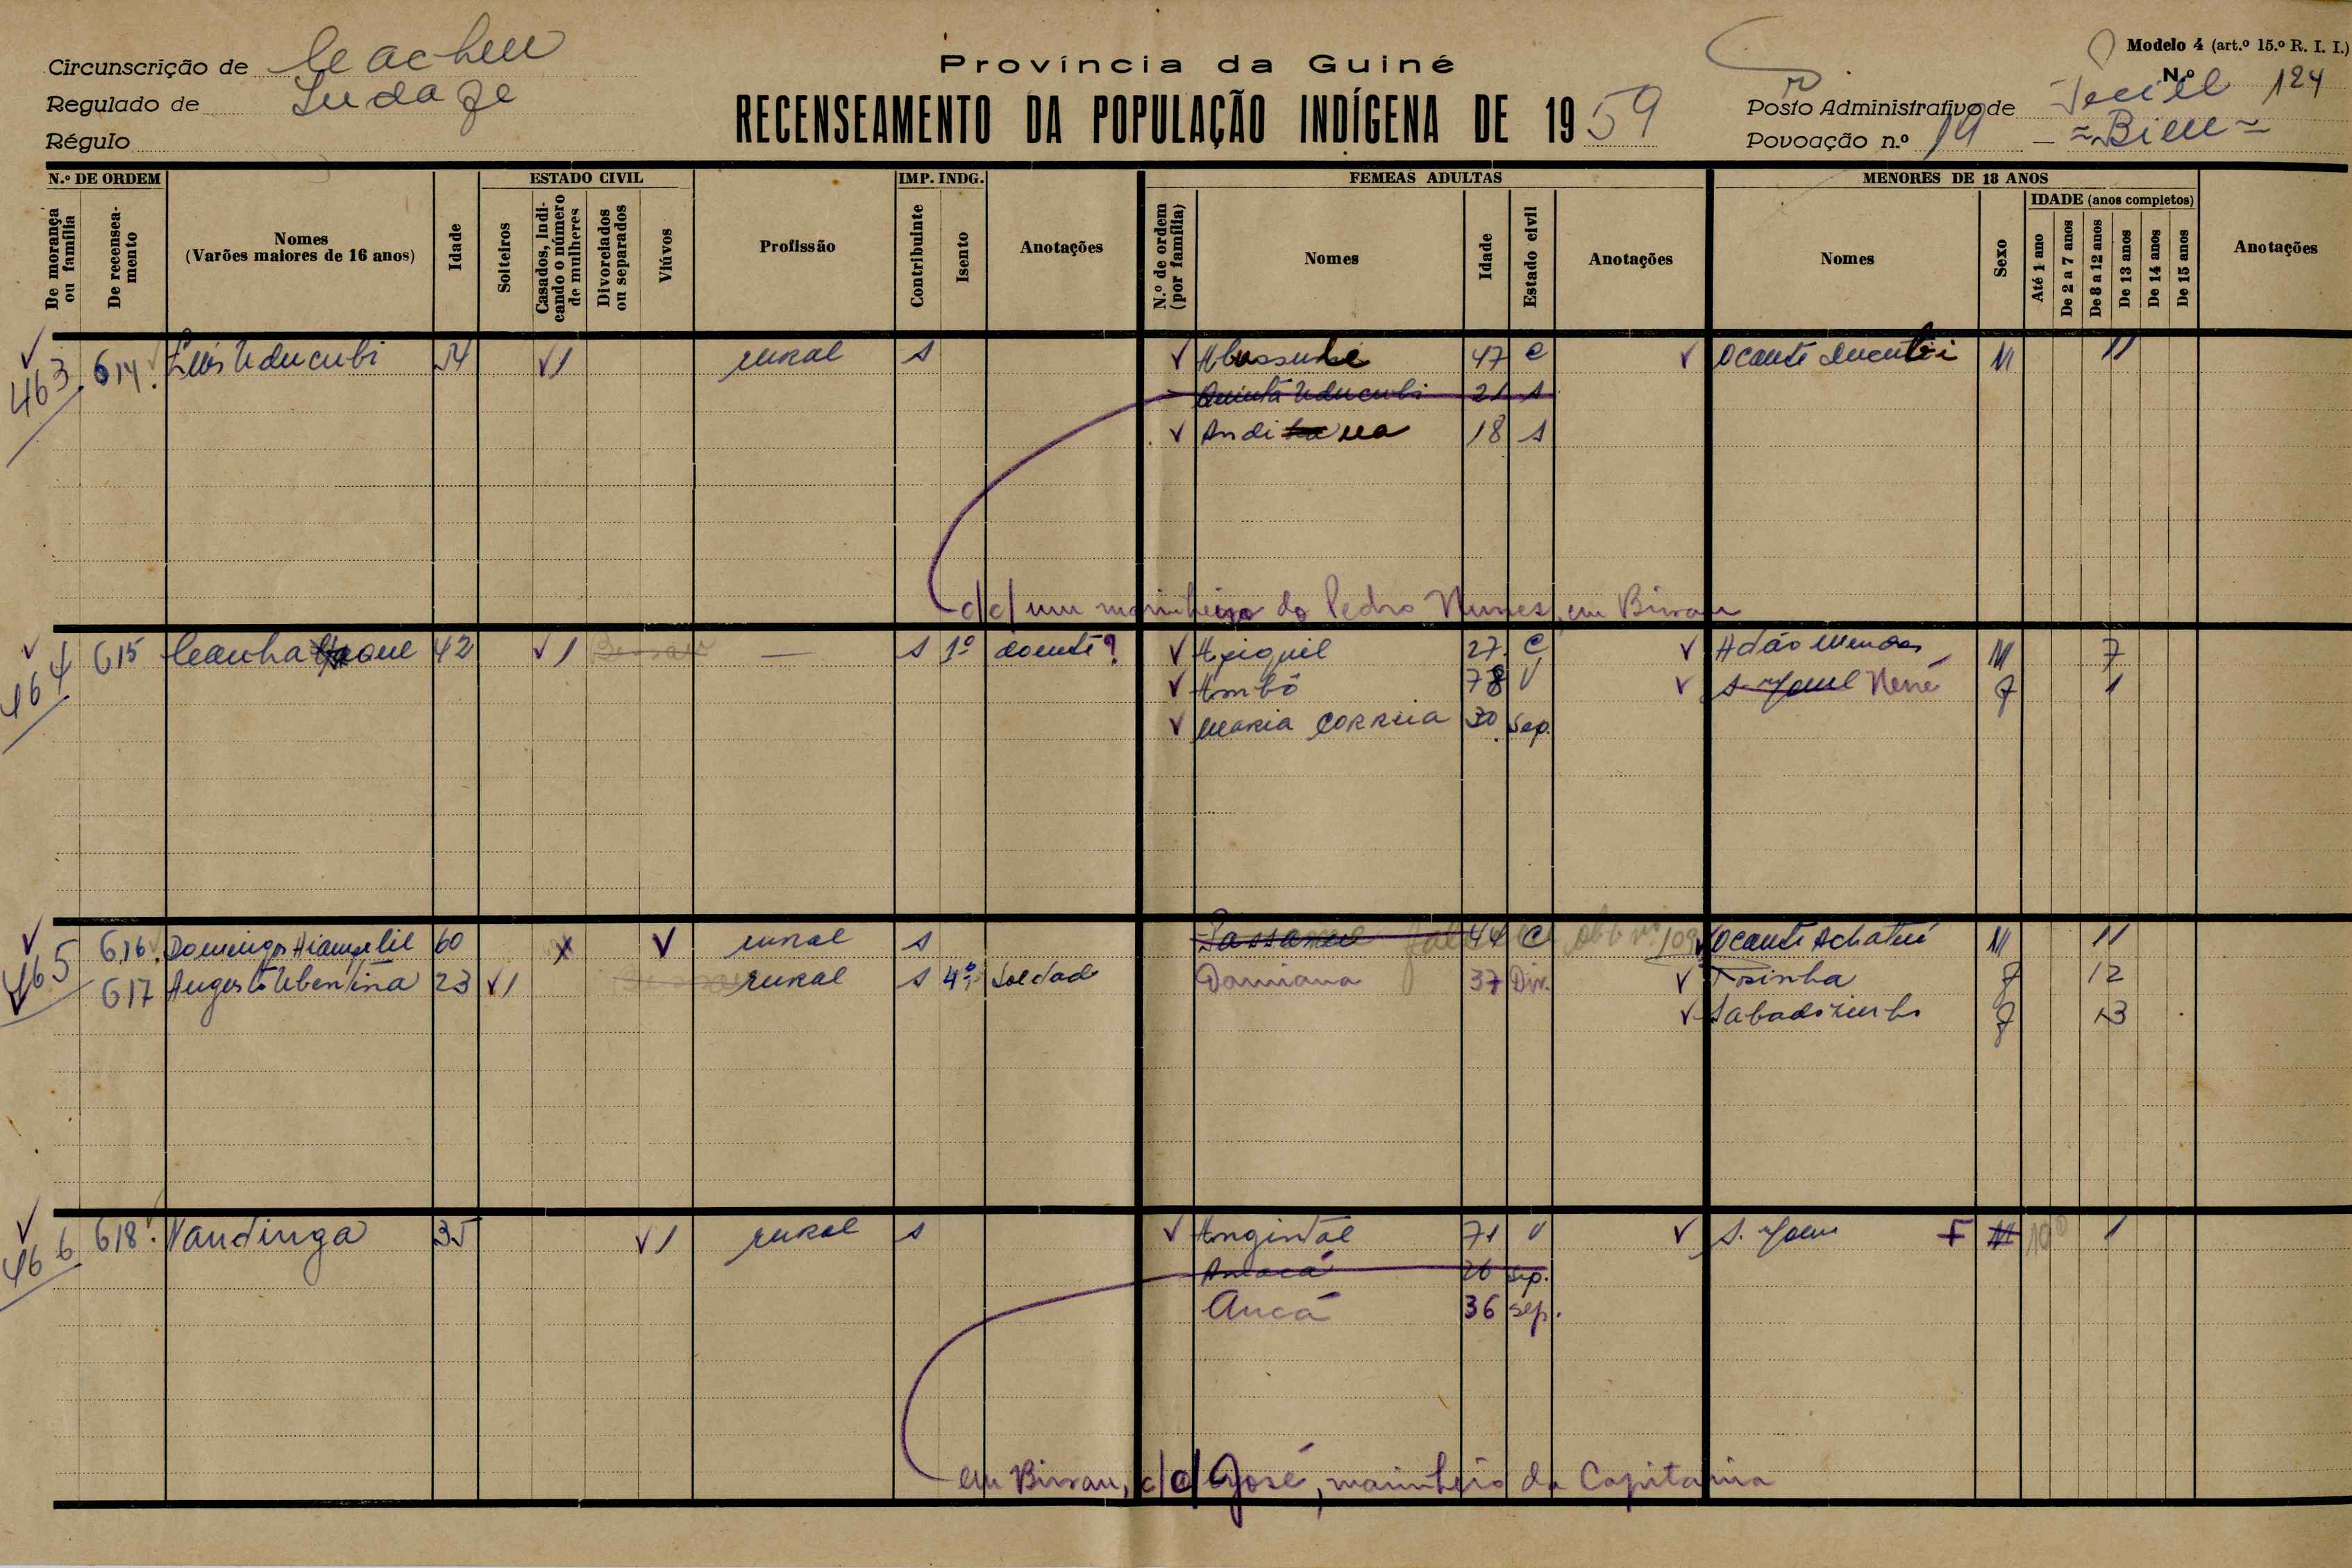 Circunscrição de Cacheu
Regulado de
Régulo
Província da Guiné
RECENSEAMENTO DA POPULAÇÃO INDÍGENA DE 1959
Modelo 4 (art.º 15.º R. I. I.)
N.º 124
Posto Administrativo de
Povoação n.º 19 — Bieu
N.º DE ORDEM
De morança ou família
De recenseamento
Nomes (Varões maiores de 16 anos)
Idade
ESTADO CIVIL
Solteiros
Casados, indicando o número de mulheres
Divorciados ou separados
Viúvos
Profissão
IMP. INDG.
Contribuinte
Isento
Anotações
FEMEAS ADULTAS
N.º de ordem (por família)
Nomes
Idade
Estado civil
Anotações
MENORES DE 18 ANOS
Nomes
Sexo
IDADE (anos completos)
Até 1 ano
De 2 a 7 anos
De 8 a 12 anos
De 13 anos
De 14 anos
De 15 anos
Anotações
463 614 Luis Uducubi 54 1 rural s 47 C M 11
Quinta Uducubi 21 s
18 s
c/c/ um marinheiro do Pedro Nunes, em Bissau
464 615 42 1 Bissau — s 1º doente? 27 C Adão Mendes M 7
Ambô 78 V Nené F 1
Maria Correia 30 sep.
465 616 Domingos 60 x rural s 44 C 109 M 11
617 Augusto Ubentina 23 1 rural s 4º soldado Damiana 37 Div. Rosinha F 12
F 13
466 618 Nandinga 35 1 rural s Angintal 71 V F M 1
26 sep.
Aucá 36 sep.
em Bissau, c/c/ José, marinheiro da Capitania